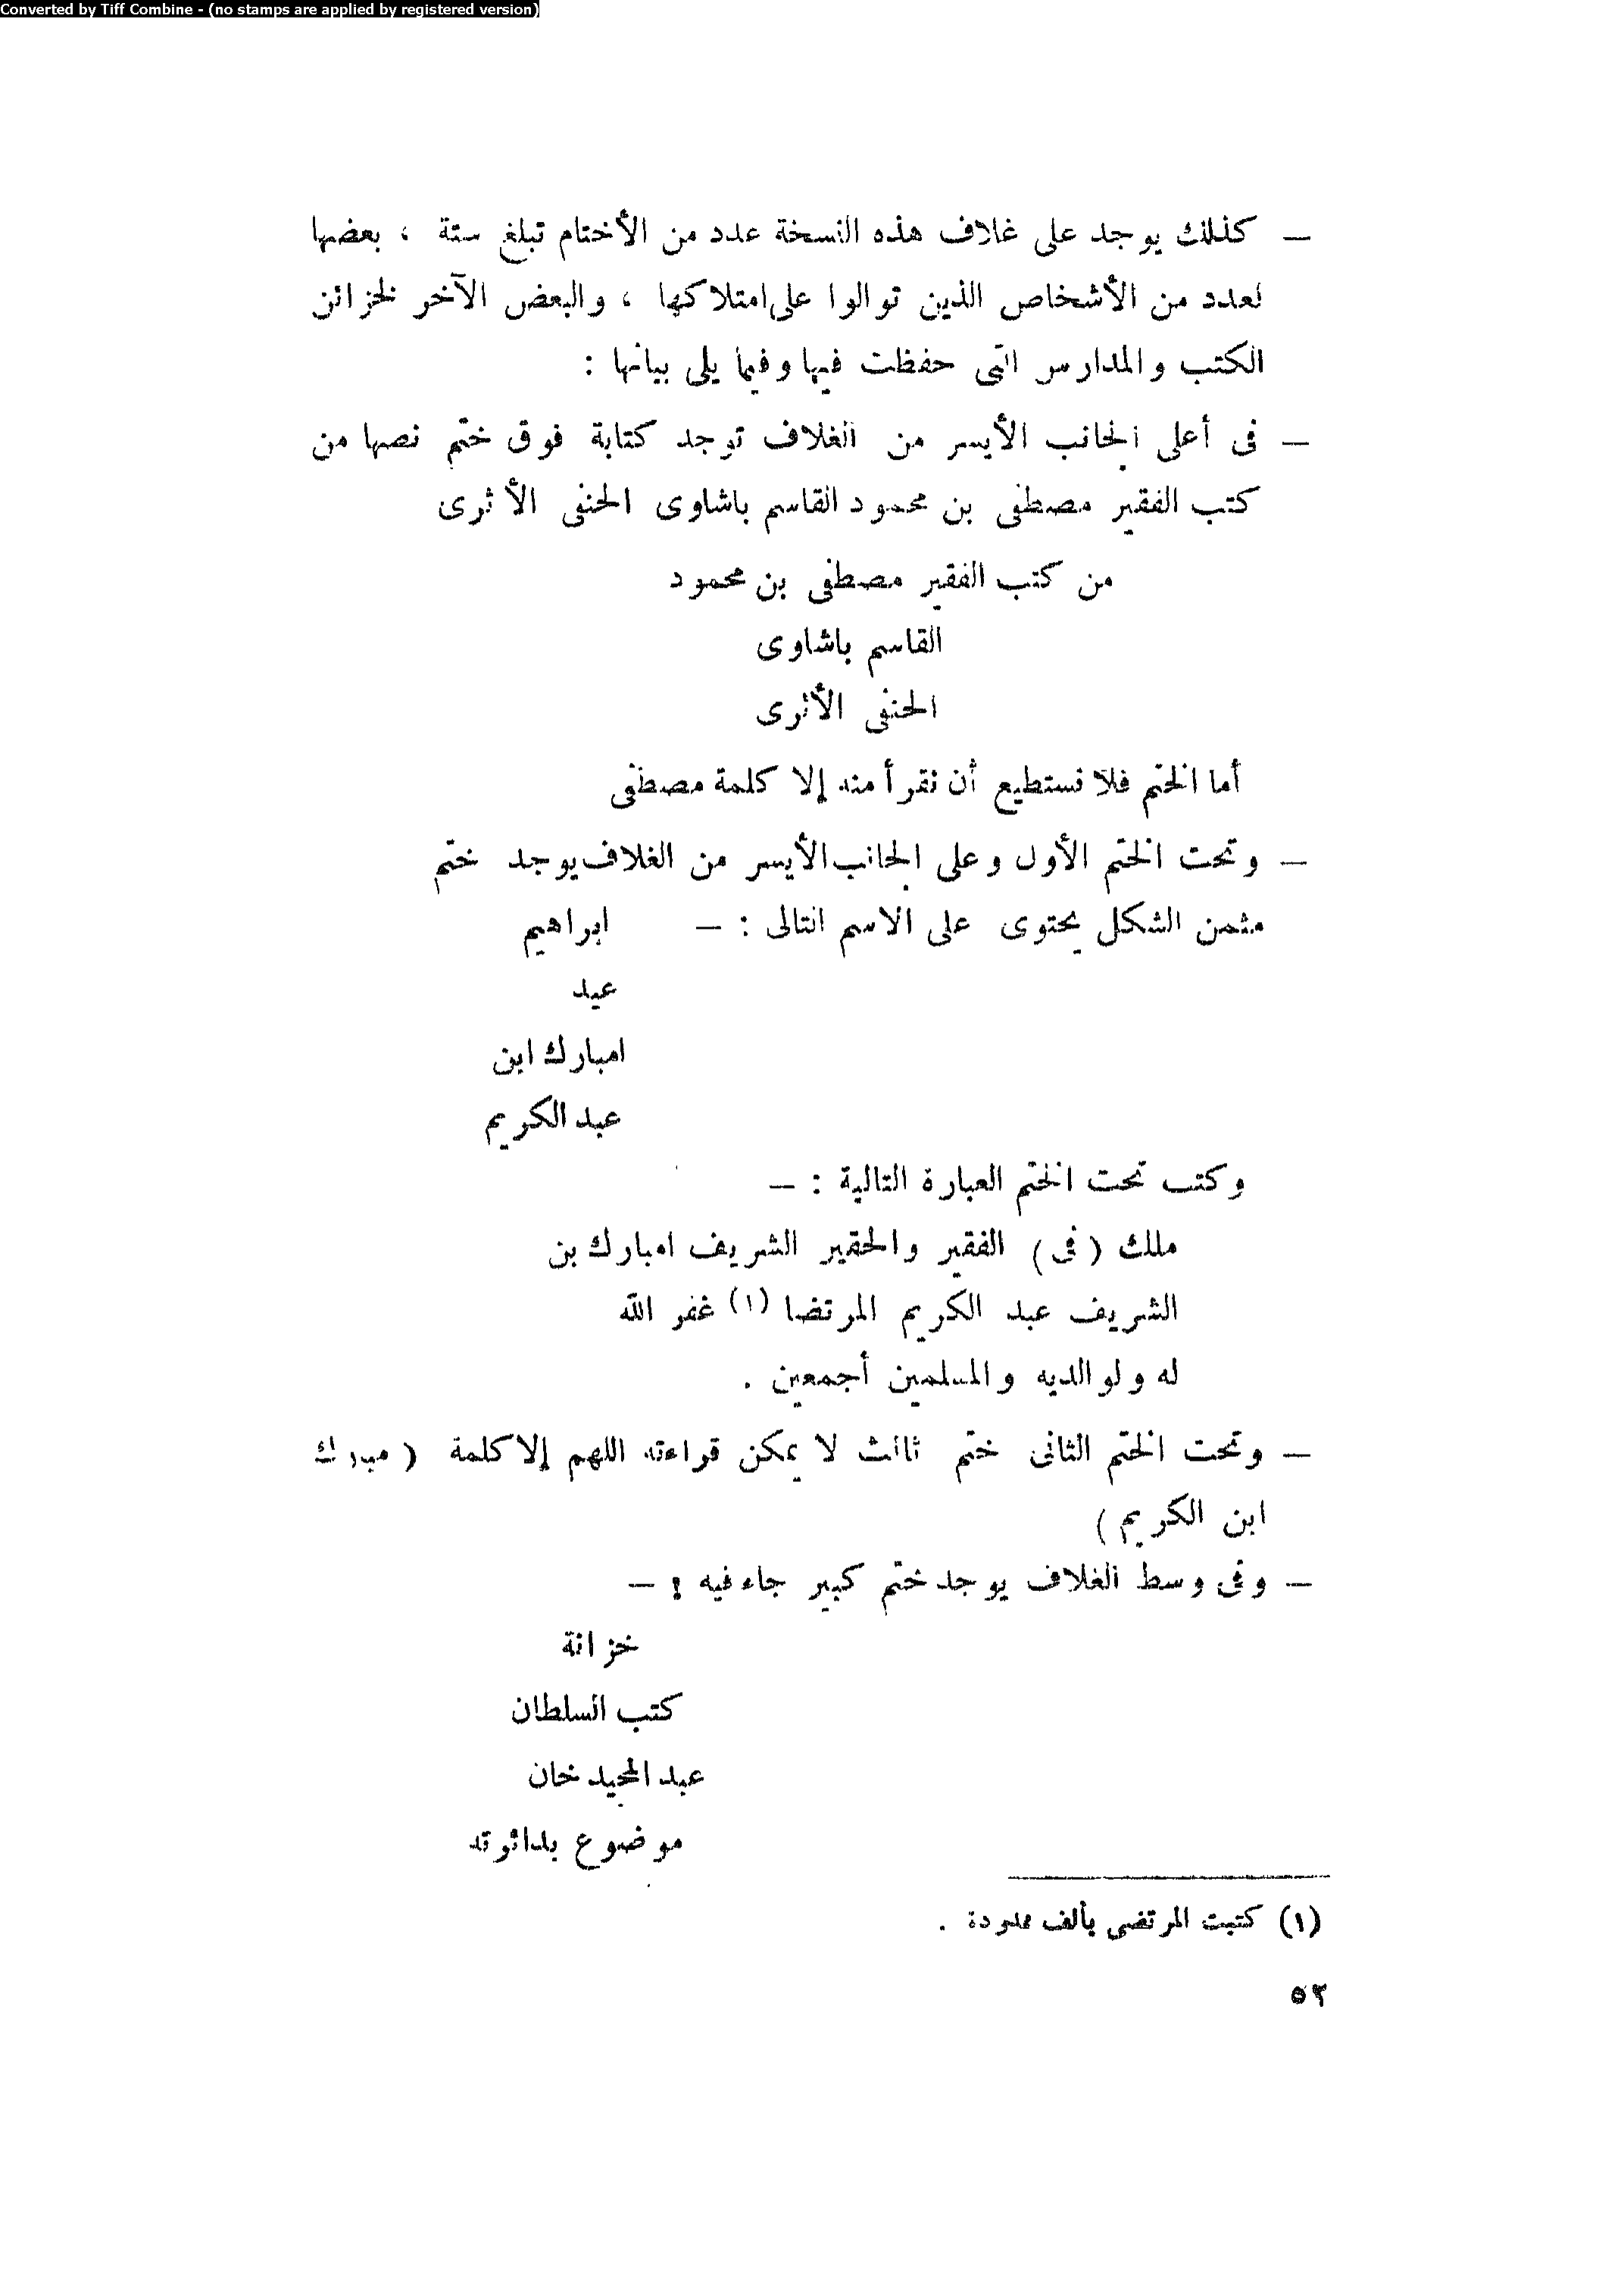 Converted by Tiff Combine - (no stamps are applied by registered version)
– كذلك يوجد على غلاف هذه النسخة عدد من الأختام تبلغ ستة ، بعضها
لعدد من الأشخاص الذين توالوا على امتلاكها ، والبعض الآخر لخزائن
الكتب والمدارس التى حفظت فيها وفيما يلى بيانها :
– فى أعلى الجانب الأيسر من الغلاف توجد كتابة فوق ختم نصها من
كتب الفقير مصطفى بن محمود القاسم باشاوى الحنفى الأثرى
من كتب الفقير مصطفى بن محمود
القاسم باشاوى
الحنفى الأثرى
أما الختم فلا نستطيع أن نقرأ منه إلا كلمة مصطفى
– وتحت الختم الأول وعلى الجانب الأيسر من الغلاف يوجد ختم
مثمن الشكل يحتوى على الاسم التالى : – ابراهيم
عيد
امبارك ابن
عبد الكريم
وكتب تحت الختم العبارة التالية : –
ملك (فى) الفقير والحقير الشريف امبارك بن
الشريف عبد الكريم المرتضا (١) غفر الله
له ولوالديه والمسلمين أجمعين .
– وتحت الختم الثانى ختم ثالث لا يمكن قراءته اللهم إلا كلمة ( مبرك
ابن الكريم )
– وفى وسط الغلاف يوجد ختم كبير جاء فيه : –
خزانة
كتب السلطان
عبد المجيد خان
موضوع
(١) كتبت المرتضى بألف ممدودة .
٥٢